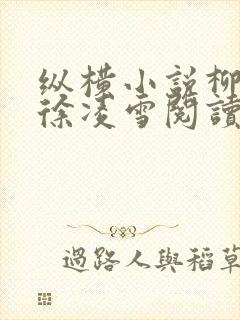 纵横小说柳
徐凌雪閱讀
過路人與稻草